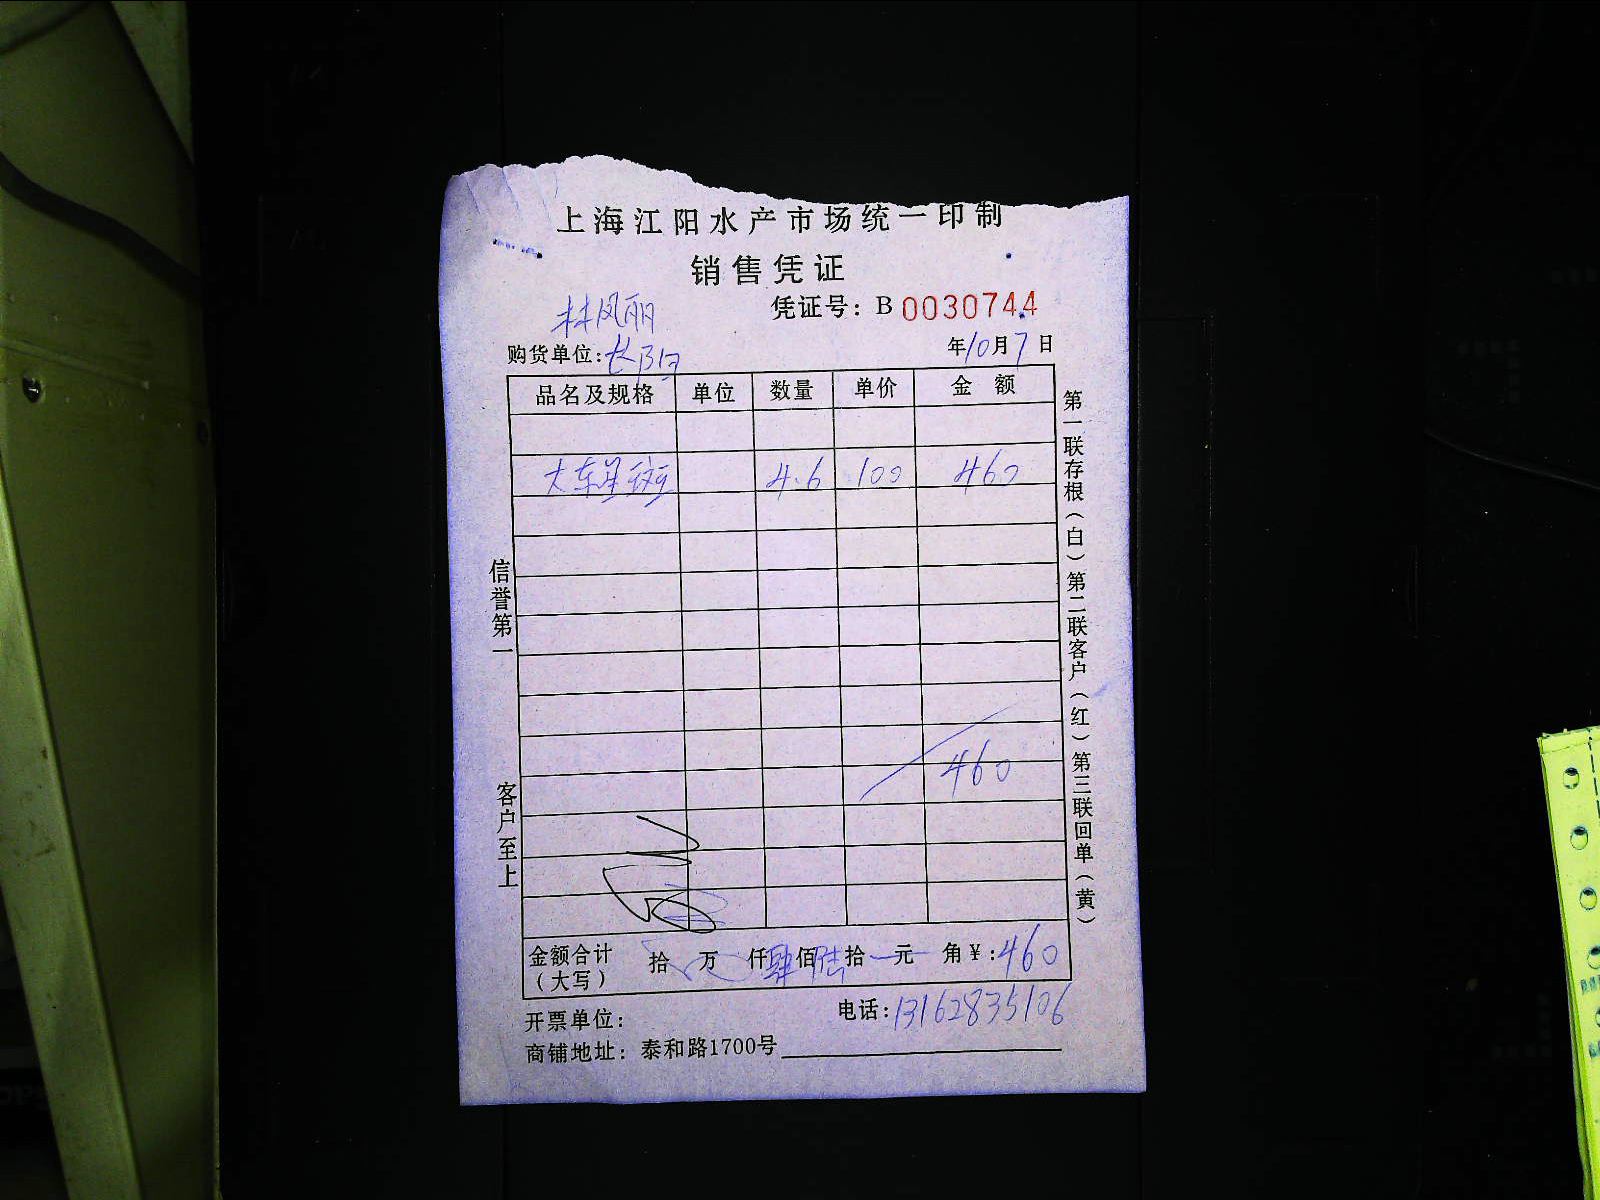 上海江阳水产市场统一印制
销售凭证
凭证号：B 0030744
林凤丽
购货单位：长阳
年10月7日
品名及规格 单位 数量 单价 金额
大东星斑 4.6 100 460
460
信誉第一 客户至上
第一联存根（白）第二联客户（红）第三联回单（黄）
金额合计（大写） 拾 万 仟肆佰陆拾 元 角￥:460
开票单位：
电话：13162835106
商铺地址：泰和路1700号